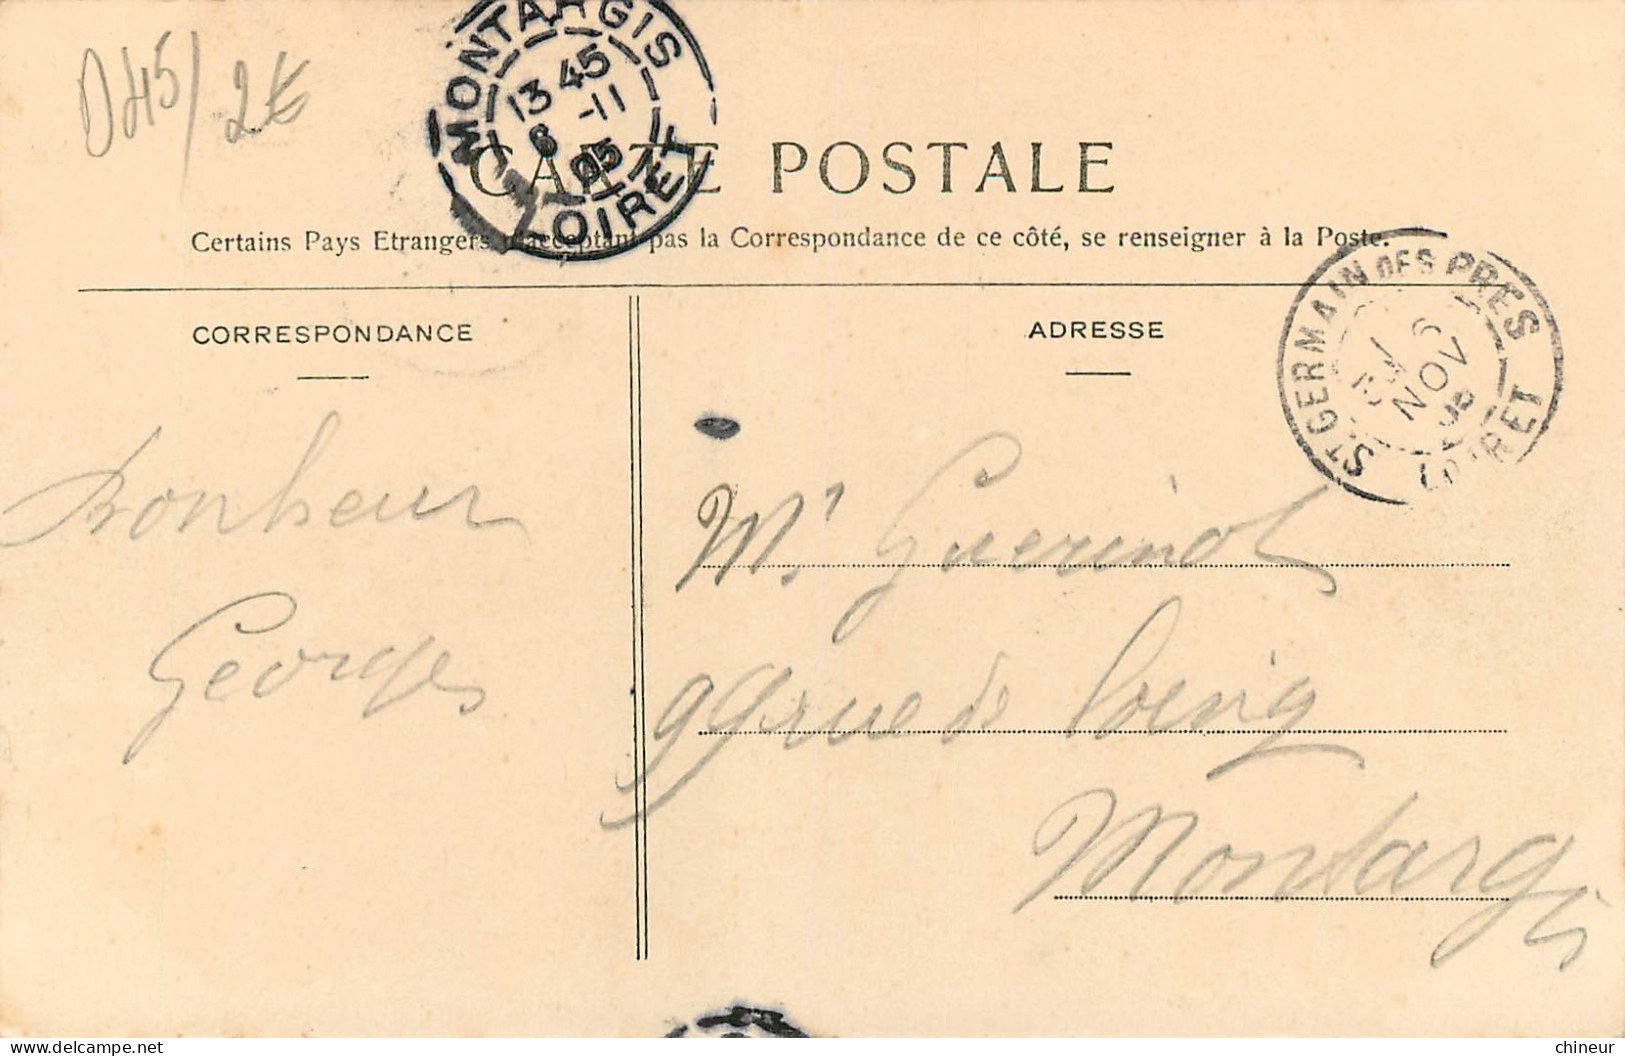 D45/ 2€
MONTARGIS
13 45
6 -11
05
LOIRET
CARTE POSTALE
Certains Pays Etrangers n'acceptant pas la Correspondance de ce côté, se renseigner à la Poste.
ST GERMAIN DES PRES
6
NOV
05
LOIRET
CORRESPONDANCE
ADRESSE
Bonheur
Georges
Mr Guerinot
99 rue de Loing
Montargis
chineur